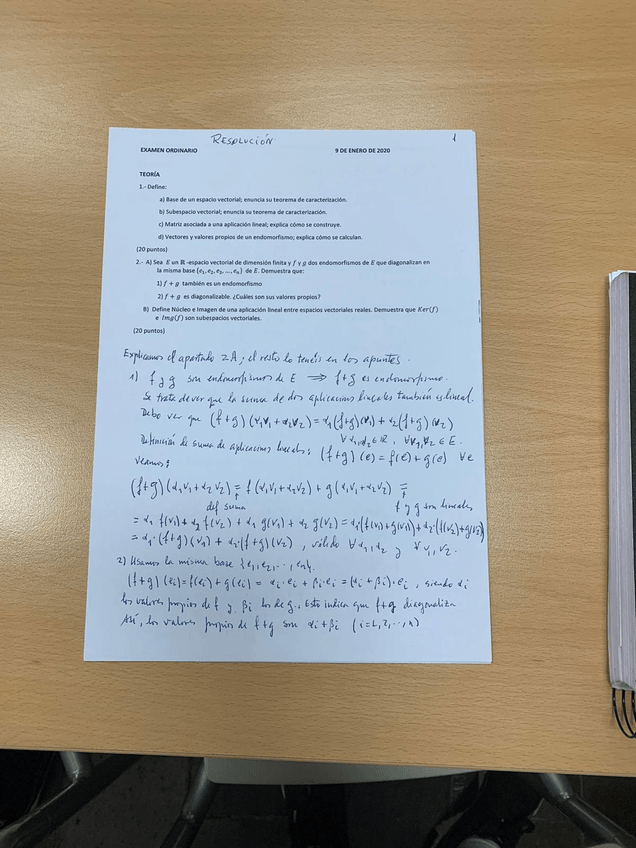 RESOLUCIÓN 1
EXAMEN ORDINARIO 9 DE ENERO DE 2020
TEORÍA
1.- Define:
a) Base de un espacio vectorial; enuncia su teorema de caracterización.
b) Subespacio vectorial; enuncia su teorema de caracterización.
c) Matriz asociada a una aplicación lineal; explica cómo se construye.
d) Vectores y valores propios de un endomorfismo; explica cómo se calculan.
(20 puntos)
2.- A) Sea E un ℝ -espacio vectorial de dimensión finita y f y g dos endomorfismos de E que diagonalizan en
la misma base {e₁, e₂, e₃, ..., eₙ} de E. Demuestra que:
1) f + g también es un endomorfismo
2) f + g es diagonalizable. ¿Cuáles son sus valores propios?
B) Define Núcleo e Imagen de una aplicación lineal entre espacios vectoriales reales. Demuestra que Ker(f)
e Img(f) son subespacios vectoriales.
(20 puntos)
Explicamos el apartado 2A; el resto lo tenéis en los apuntes.
1) f y g son endomorfismos de E ⟹ f+g es endomorfismo.
Se trata de ver que la suma de dos aplicaciones lineales también es lineal.
Debo ver que (f+g)(α₁v₁+α₂v₂) = α₁(f+g)(v₁) + α₂(f+g)(v₂)
∀ α₁,α₂ ∈ ℝ, ∀ v₁,v₂ ∈ E.
Definición de suma de aplicaciones lineales: (f+g)(e) = f(e) + g(e) ∀e
Veamos:
(f+g)(α₁v₁+α₂v₂) = f(α₁v₁+α₂v₂) + g(α₁v₁+α₂v₂) =
def suma f y g son lineales
= α₁ f(v₁) + α₂ f(v₂) + α₁ g(v₁) + α₂ g(v₂) = α₁·(f(v₁)+g(v₁)) + α₂·(f(v₂)+g(v₂))
= α₁·(f+g)(v₁) + α₂·(f+g)(v₂), válido ∀ α₁,α₂ y ∀ v₁, v₂.
2) Usamos la misma base {e₁,e₂,...,eₙ}.
(f+g)(eᵢ) = f(eᵢ) + g(eᵢ) = αᵢ·eᵢ + βᵢ·eᵢ = (αᵢ+βᵢ)·eᵢ, siendo αᵢ
los valores propios de f y βᵢ los de g. Esto indica que f+g diagonaliza
Así, los valores propios de f+g son αᵢ+βᵢ (i=1,2,...,n)